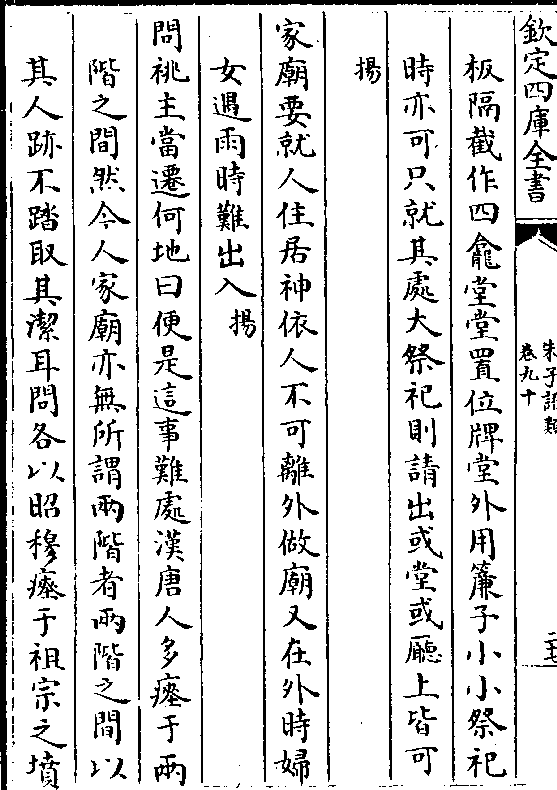 欽定四庫全書
朱子語類
卷九十
板隔截作四龕堂堂置位牌堂外用簾子小小祭祀
時亦可只就其處大祭祀則請出或堂或廳上皆可
揚
家廟要就人住居神依人不可離外做廟又在外時婦
女遇雨時難出入揚
問祧主當遷何地曰便是這事難處漢唐人多瘞于兩
階之間然今人家廟亦無所謂兩階者兩階之間以
其人跡不踏取其潔耳問各以昭穆瘞于祖宗之墳